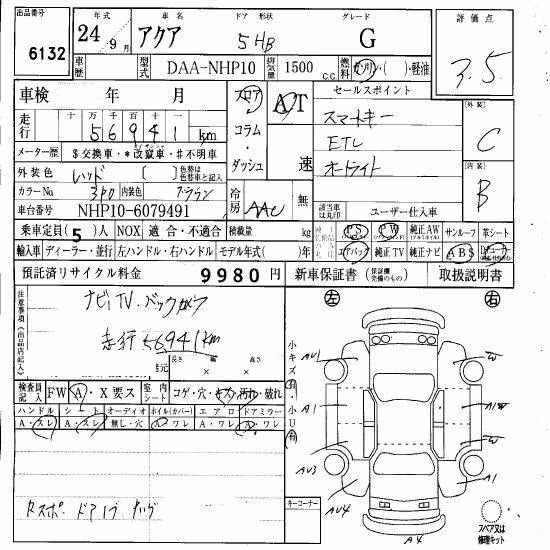 出品番号 年式 車名 ドア 形状 グレード 評価点
6132 24年 9月 アクア 5 HB G 3.5
車歴 型式 DAA-NHP10 排気量 1500 c.c. 燃料 ガソリン・( )・軽油
車検 年 月 フロア AT セールスポイント
走行 十万千百十一 56941km コラム・ダッシュ 速 スマートキー
メーター歴 $交換車・*改竄車・#不明車 ETC
外装色 レッド [ ] 色替は色替車と記入 オートライト
外装 C
カラーNo. 3P0 内装色 ブラウン 冷房 AAC 無
内装 B
車台番号 NHP10-6079491 該当車は丸印 ユーザー仕入車
乗車定員( 5 )人 NOX 適合・不適合 積載量 kg PS PW 純正AW サンルーフ 革シート
輸入車 ディーラー・並行 左ハンドル・右ハンドル モデル年式( )年 エアバック 純正TV 純正ナビ ABS
預託済リサイクル料金 9980円 新車保証書 (保証欄完備のもの) 取扱説明書
注意事項(出品店記入) ナビ TV バックカメラ
走行 56941km
長さ 幅 高さ
元 × ×
左 右
小キズ有 小U有
検査員記入 FW A・X要ス 室内シート コゲ・穴・キズ・汚れ・破れ
ハンドル シート オーディオ ホイル(カバー) エアロ ドアミラー
A・スレ A・スレ 無し・穴 A・ワレ A・ワレ A・ワレ
AU1 W
A1 A1W
W
AU3
AU4
A4
キーコーナー
スペア又は修理キット